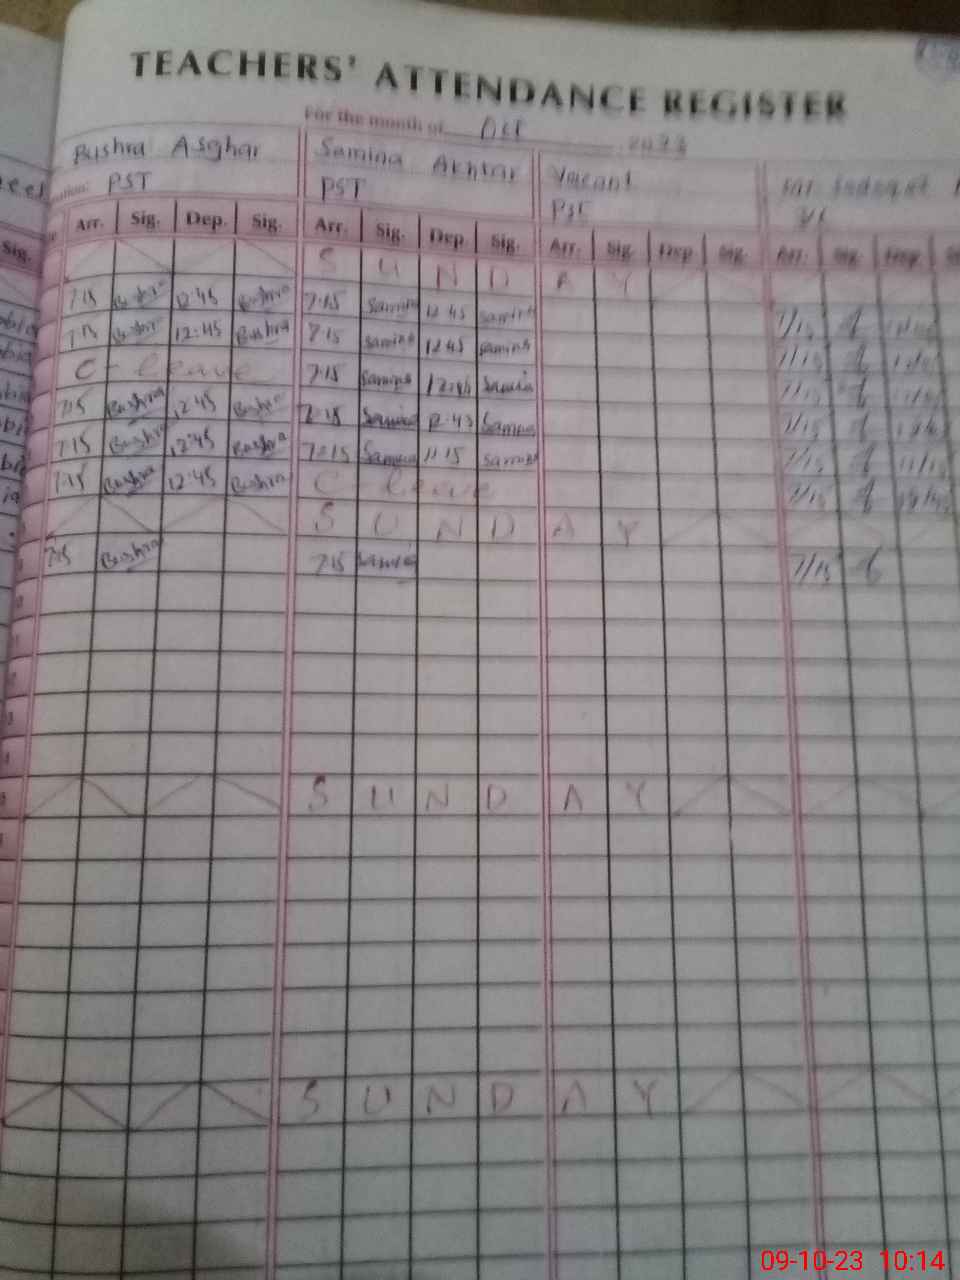 TEACHERS' ATTENDANCE REGISTER
For the month of Oct 2023
Bushra Asghar Samina Akhtar Vacant
PST PST
Arr. Sig. Dep. Sig. Arr. Sig. Dep. Sig. Arr. Sig. Dep. Sig. Arr. Sig. Dep.
S U N D A Y
7:15 Bushra 12:45 Bushra 7:15 Samina 12:45 Samina 7/15
7:15 Bushra 12:45 Bushra 7:15 Samina 12:45 Samina 7/15
C - leave 7:15 Samina Samina 7/15
7:15 Bushra 12:45 Bushra 7:15 Samina Samina 7/15
7:15 Bushra 12:45 Bushra 7:15 Samina 11:15 Samina 7/15
7:15 Bushra 12:45 Bushra C - leave 7/15
S U N D A Y
7:15 Bushra 7:15 Samina 7/15
S U N D A Y
S U N D A Y
09-10-23 10:14